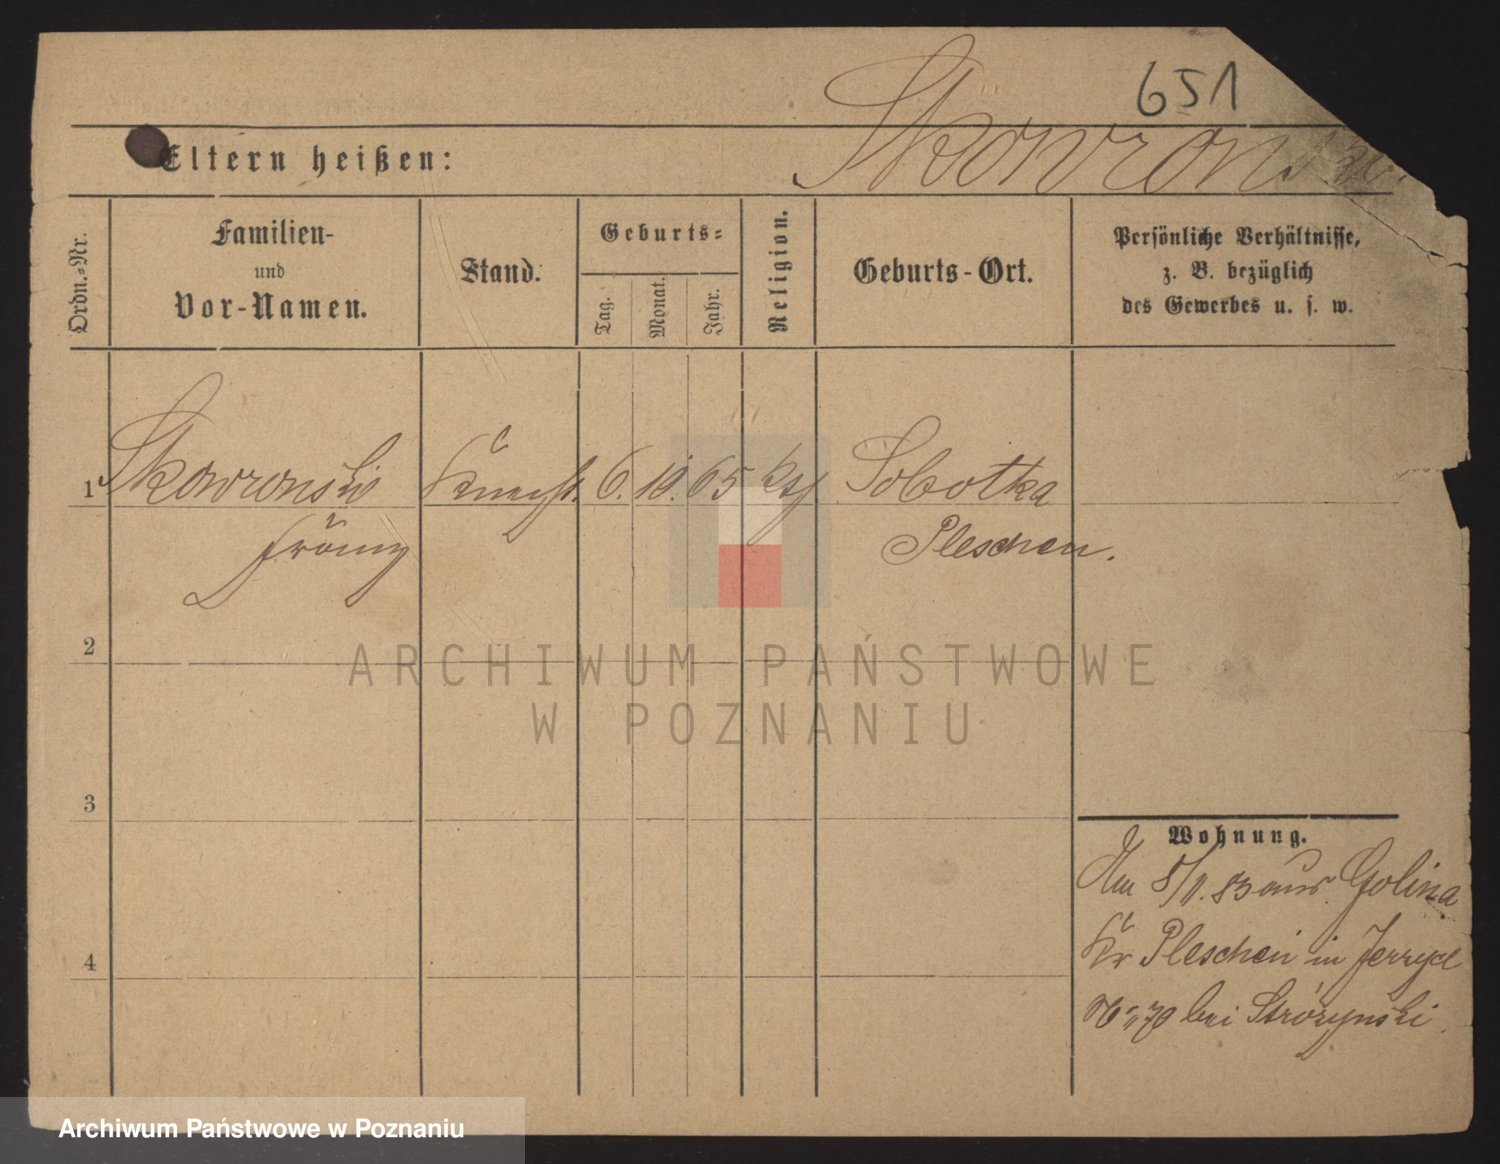 651
Skowronski
Eltern heißen:
Ordn.-Nr.
Familien-
und
Vor-Namen.
Stand.
Geburts-
Tag.
Monat.
Jahr.
Religion.
Geburts-Ort.
Persönliche Verhältnisse,
z. B. bezüglich
des Gewerbes u. s. w.
1 Skowronski Knecht. 6. 10. 65 kth Sobotka
Franz Pleschen.
2
ARCHIWUM PAŃSTWOWE
W POZNANIU
3
Wohnung.
Am 8/1. 83 aus Golina
4
Kr Pleschen in Jerzyce
No 70 bei Stróżynski
Archiwum Państwowe w Poznaniu